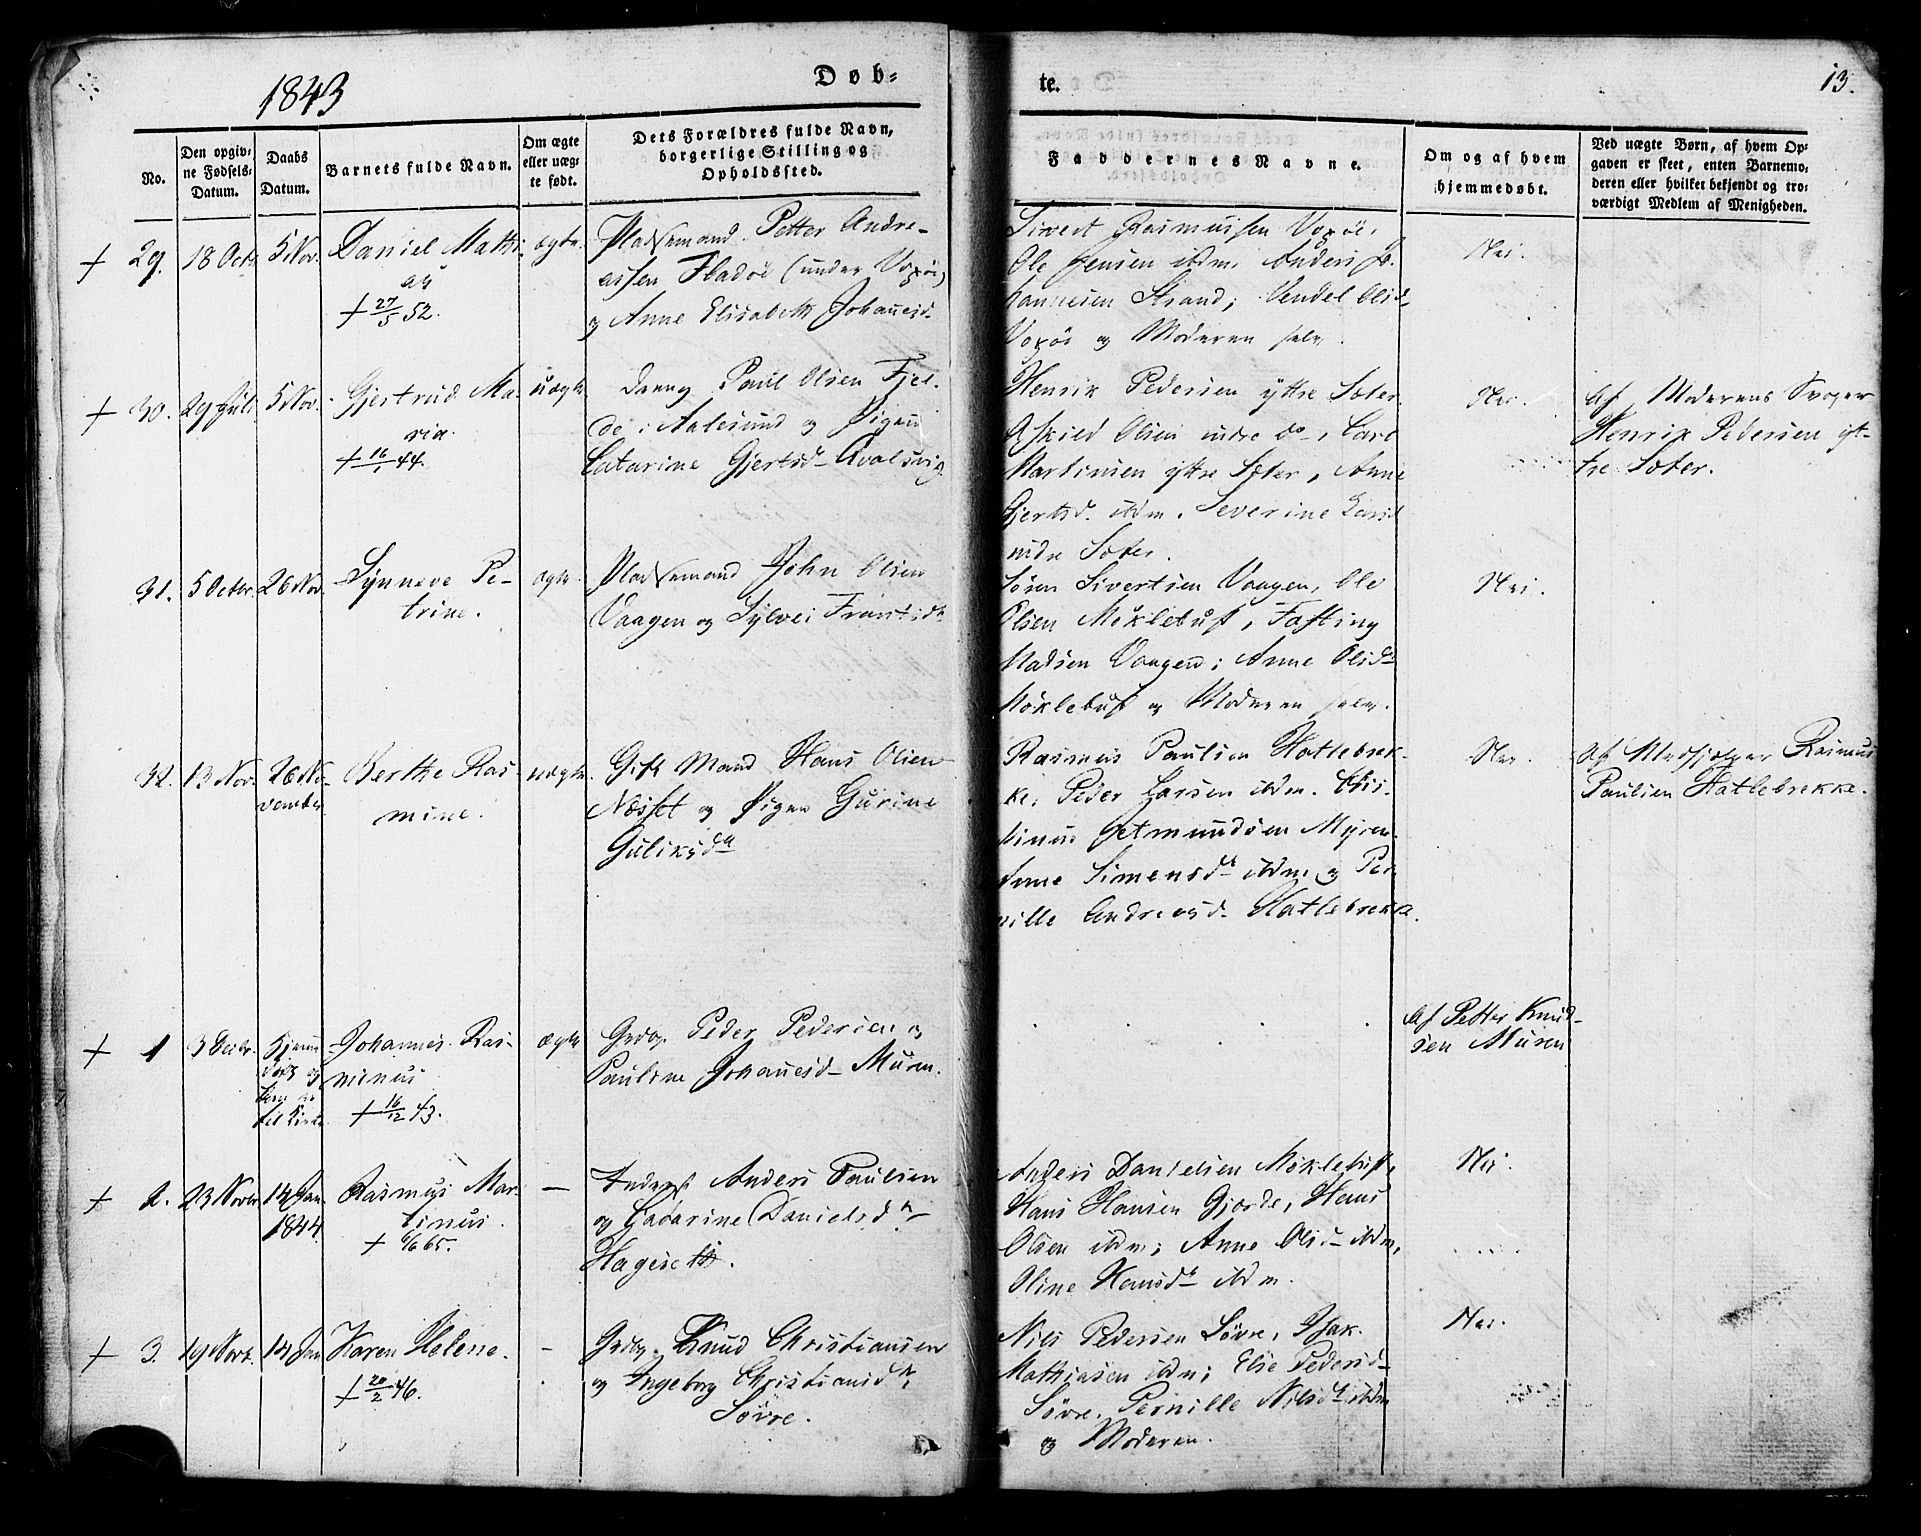 1843
Døb-
te.
13.
No.
Den opgiv-
ne Fødsels-
Datum.
Daabs
Datum.
Barnets fulde Navn.
Om ægte
eller uæg-
te født.
Dets Forældres fulde Navn,
borgerlige Stilling og
Opholdssted.
Faddernes Navne.
Om og af hvem
hjemmedøbt.
Ved uægte Børn, af hvem Op-
gaven er skeet, enten Barnemo-
deren eller hvilket bekjendt og tro-
værdigt Medlem af Menigheden.
+ 29. 18 Octr 5 Nov. Daniel Mathi-
as
+ 27/5 52.
ægte
Pladsemand Petter Andre-
assen Fladøe (under Voxøe)
og Anne Elisabeth Johannesd-
Sivert Rasmussen Voxøe,
Ole Jensen ibdm, Anders Jo-
hannesen Strand, Vendel Olsd-
Voxøe og Moderen selv.
Nei.
+ 30. 29 Juli 5 Nov. Gjertrud Ma-
ria.
+ 16/1 44.
uægte
Dreng Paul Olsen Fjel-
de i Aalesund og Pigen
Catarine Gjertsd- Qvalsvig
Henrik Pedersen yttre Sæter
Askild Olsen indre do, Carl
Martinusen yttre Sæter, Anne
Gjertsd. ibdm. Severine Larsd
indre Sæter.
Nei.
Af Moderens Svoger
Henrik Pedersen yt-
tre Sæter.
31. 5 Octbr. 26 Nov. Synneve Pe-
trine.
ægte.
Pladsemand John Olsen
Vaagen og Sylvei Frantsd-
Søren Sivertsen Vaagen, Ole
Olsen Møklebust, Fasting
Madsen Vaagen; Anne Olsd-
Møklebust og Moderen selv.
Nei.
32. 13 Nov. 26 No-
vember
Berthe Ras-
mine.
uægte.
Gift Mand Hans Olsen
Næsset og Pigen Gurine
Guliksd-
Rasmus Paulsen Hatlebrek-
ke, Peder Larsen ibdm. Chri-
stinus Getmundsen Myren
Anne Simensd- ibdm og Per-
nille Andreasd- Hatlebrekke.
Nei.
Af Medhjelper Rasmus
Paulsen Hatlebrekke.
+ 1 3 Decbr. Hjemme
døbt og
til Kirke
Johannes Ras-
minus
+ 16/12 43.
ægte
Grdbr. Peder Pedersen og
Pauline Johannesd- Muren.
Af Petter Knud-
sen Muren
+ 2. 23 Novbr 14 Jan.
1844.
Rasmus Mar-
tinus.
+ 6/6 65.
—
Anders Paulsen
og Catarine Danielsd-
Hageseth.
Anders Danielsen Møklebust,
Hans Hansen Gjærde, Hans
Olsen ibdm; Anne Olsd- ibdm,
Oline Hansd- ibdm.
Nei.
+ 3. 19 Novb. 14 Jan Karen Helene.
+ 20/2 46.
—
Grdbr. Knud Christiansen
og Ingeborg Christiansd-
Søvre.
Nils Pedersen Søvre, Isak
Mathiasen ibdm; Else Pedersd-
Søvre, Pernille Nilsd- ibdm
og Moderen.
Nei.